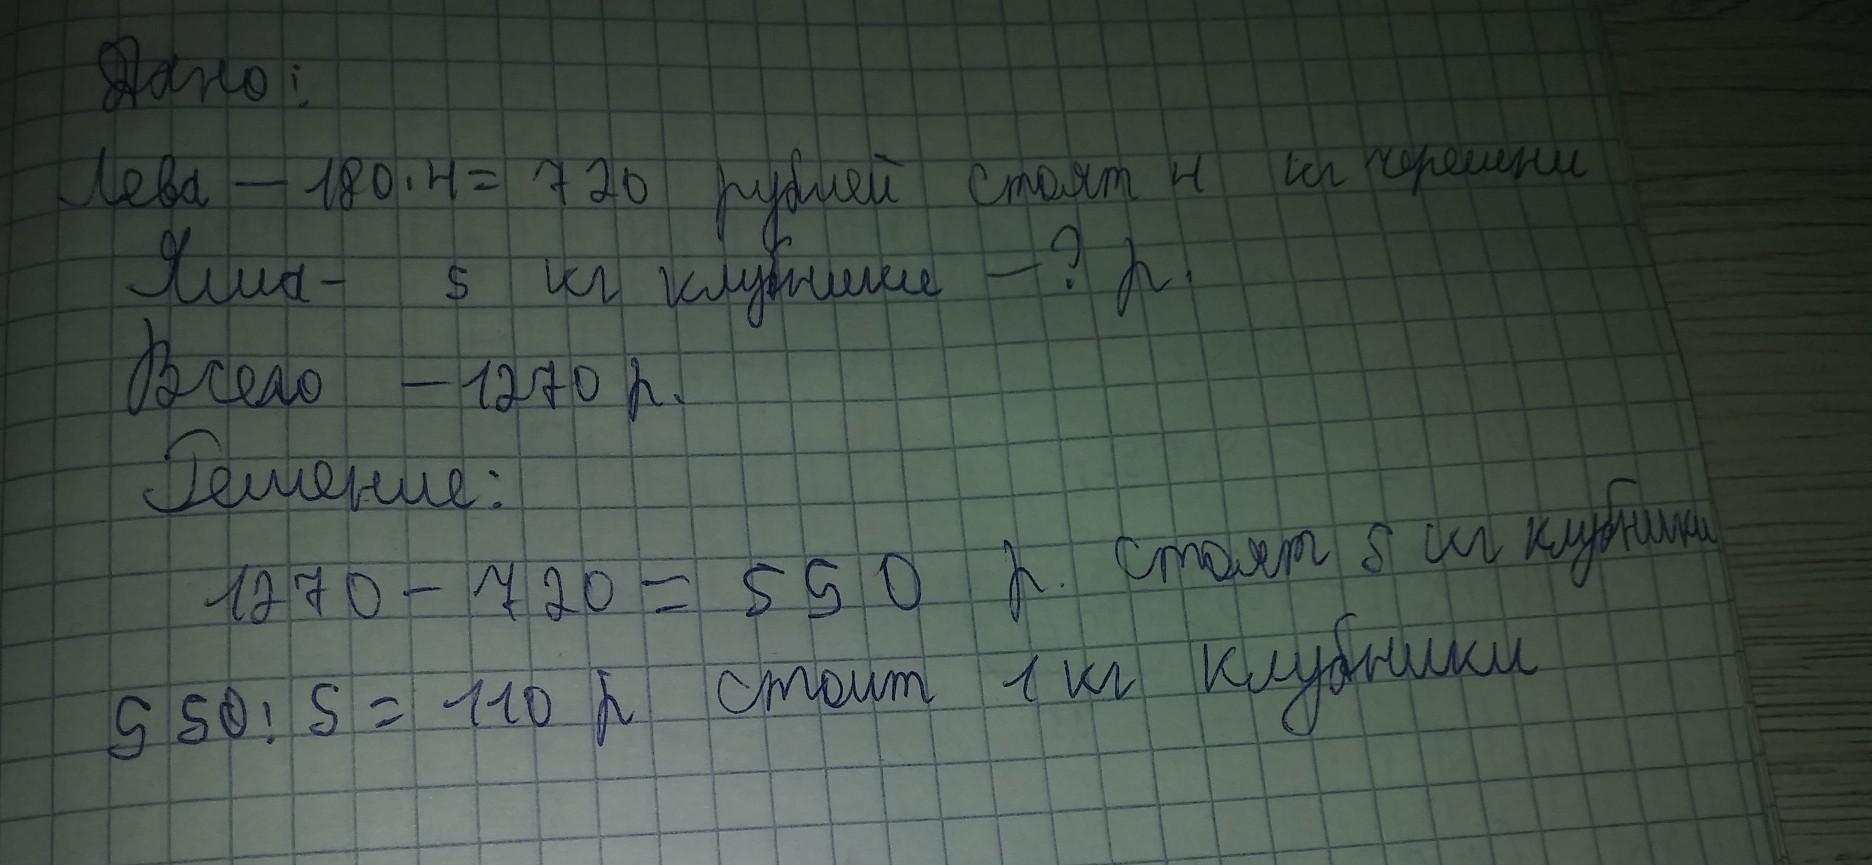 Дано:
Лева – 180·4= 720 рублей стоят 4 кг черешни
Яша- 5 кг клубники –? р.
Всего – 1270 р.
Решение:
1270 – 720 = 550 р. стоят 5 кг клубники
550:5= 110 р стоит 1 кг клубники